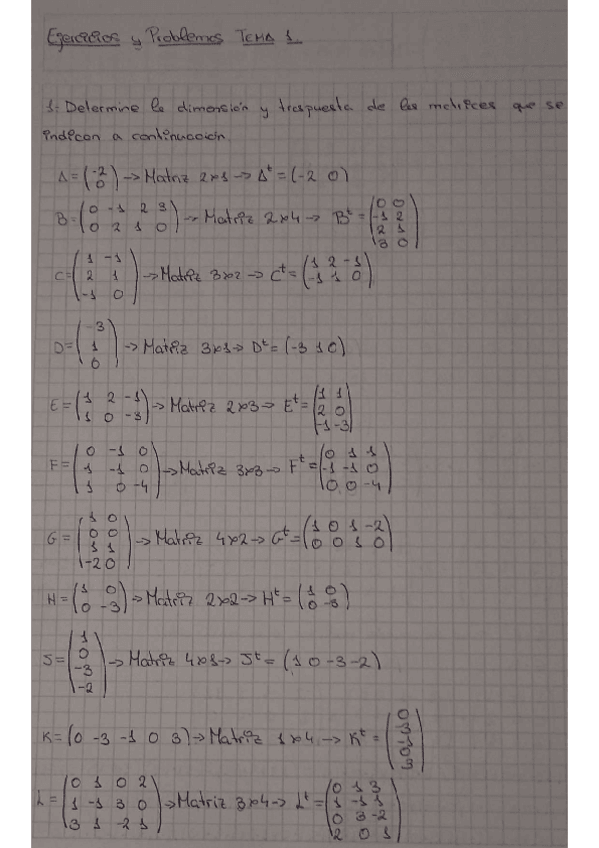 Ejercicios y Problemas TEMA 1.
1.- Determine la dimensión y traspuesta de las matrices que se
indican a continuación.
A = (-2; 0) -> Matriz 2x1 -> A^t = (-2 0)
B = (0 -1 2 3; 0 2 1 0) -> Matriz 2x4 -> B^t = (0 0; -1 2; 2 1; 3 0)
C = (1 -1; 2 1; -1 0) -> Matriz 3x2 -> C^t = (1 2 -1; -1 1 0)
D = (-3; 1; 0) -> Matriz 3x1 -> D^t = (-3 1 0)
E = (1 2 -1; 1 0 -3) -> Matriz 2x3 -> E^t = (1 1; 2 0; -1 -3)
F = (0 -1 0; 1 -1 0; 1 0 -4) -> Matriz 3x3 -> F^t = (0 1 1; -1 -1 0; 0 0 -4)
G = (1 0; 0 0; 1 1; -2 0) -> Matriz 4x2 -> G^t = (1 0 1 -2; 0 0 1 0)
H = (1 0; 0 -3) -> Matriz 2x2 -> H^t = (1 0; 0 -3)
J = (1; 0; -3; -2) -> Matriz 4x1 -> J^t = (1 0 -3 -2)
K = (0 -3 -1 0 3) -> Matriz 1x4 -> K^t = (0; -3; -1; 0; 3)
L = (0 1 0 2; 1 -1 3 0; 3 1 -2 1) -> Matriz 3x4 -> L^t = (0 1 3; 1 -1 1; 0 3 -2; 2 0 1)